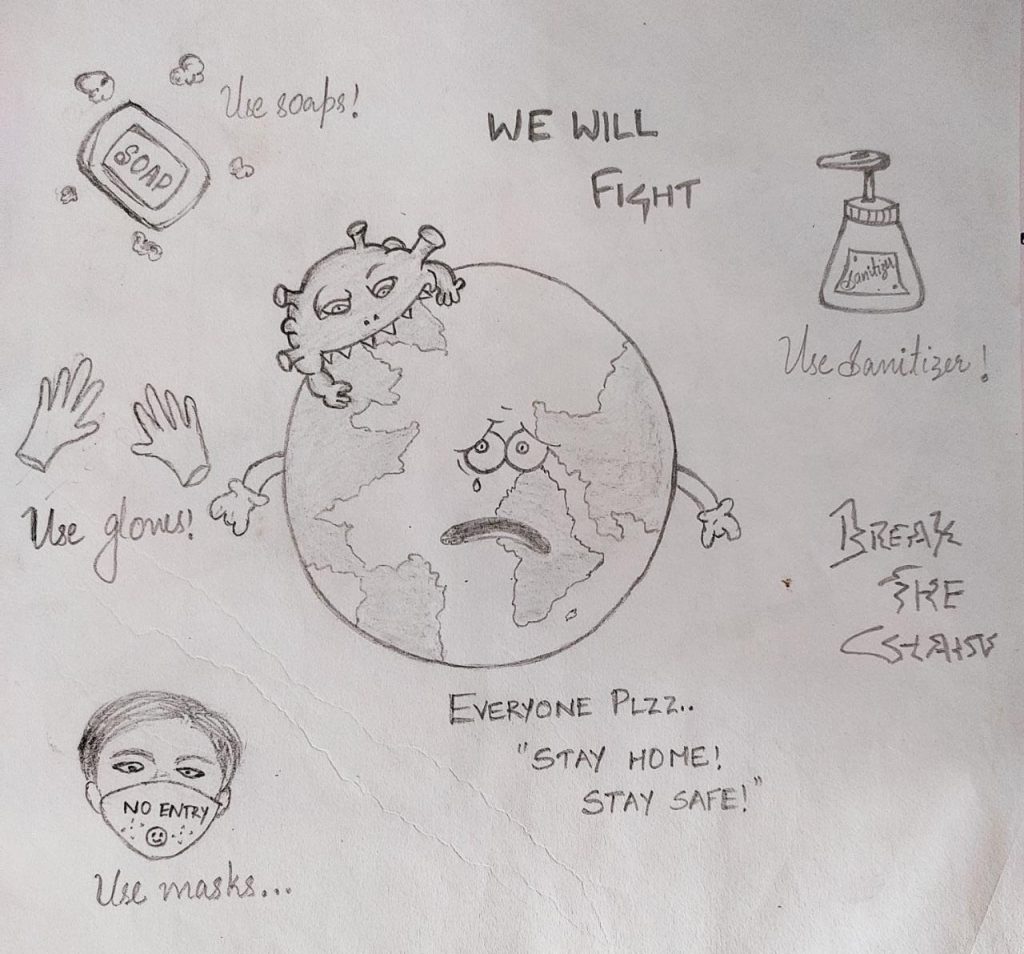 Use soaps!
SOAP
WE WILL
FIGHT
Sanitizer
Use Sanitizer!
Use gloves!
BREAK
THE
CHAIN
NO ENTRY
Use masks...
EVERYONE PLZZ..
"STAY HOME!
STAY SAFE!"